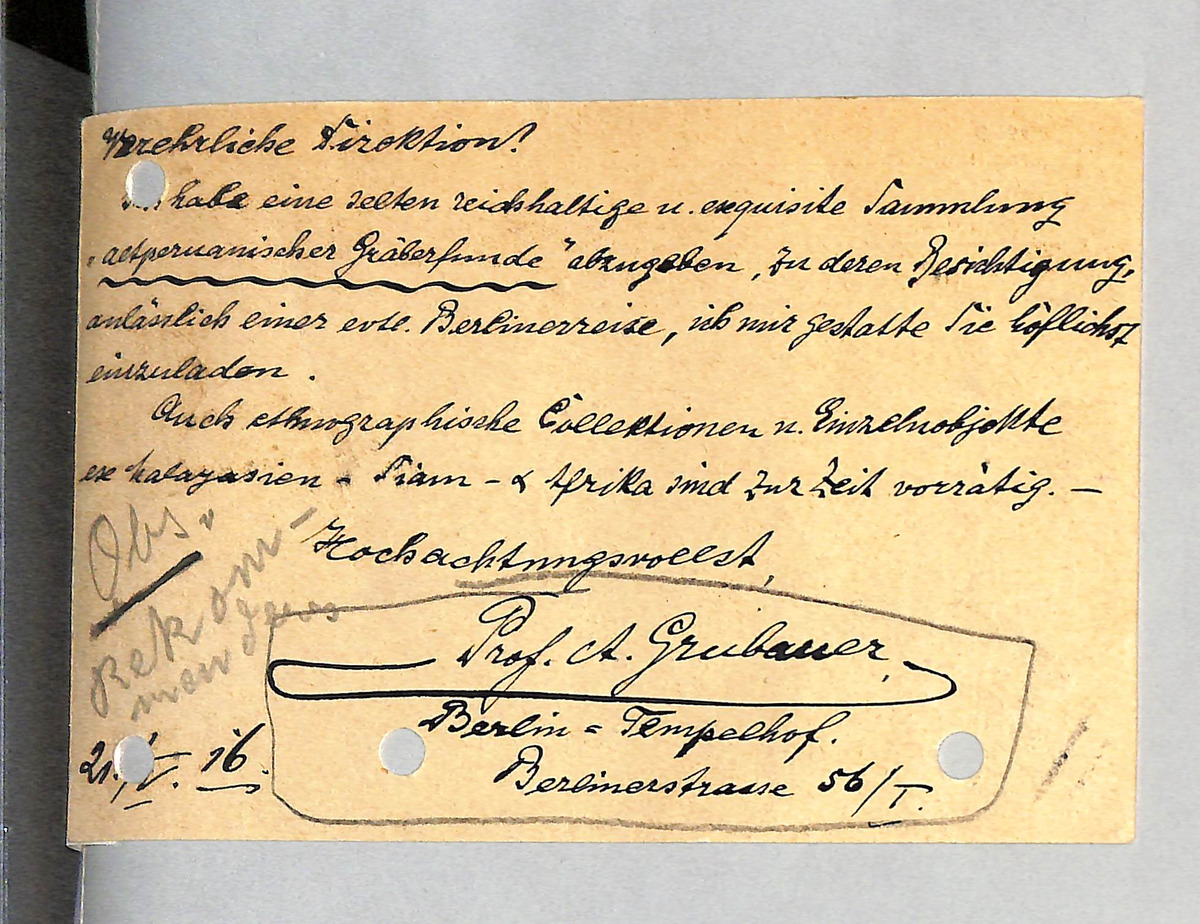 Verehrliche Direktion!
Ich habe eine selten reichhaltige u. exquisite Sammlung
"altperuanischer Gräberfunde" abzugeben, zu deren Besichtigung,
anlässlich einer evtl. Berlinerreise, ich mir gestatte Sie höflichst
einzuladen.
Auch ethnographische Collektionen u. Einzelnobjekte
ex Malayasien - Siam - & Afrika sind zur Zeit vorrätig. —
Hochachtungsvollst,
Prof. A. Grubauer
Berlin = Tempelhof.
Berlinerstrasse 56/I.
21. V. 16.
Obs.
Rekom-
menderes